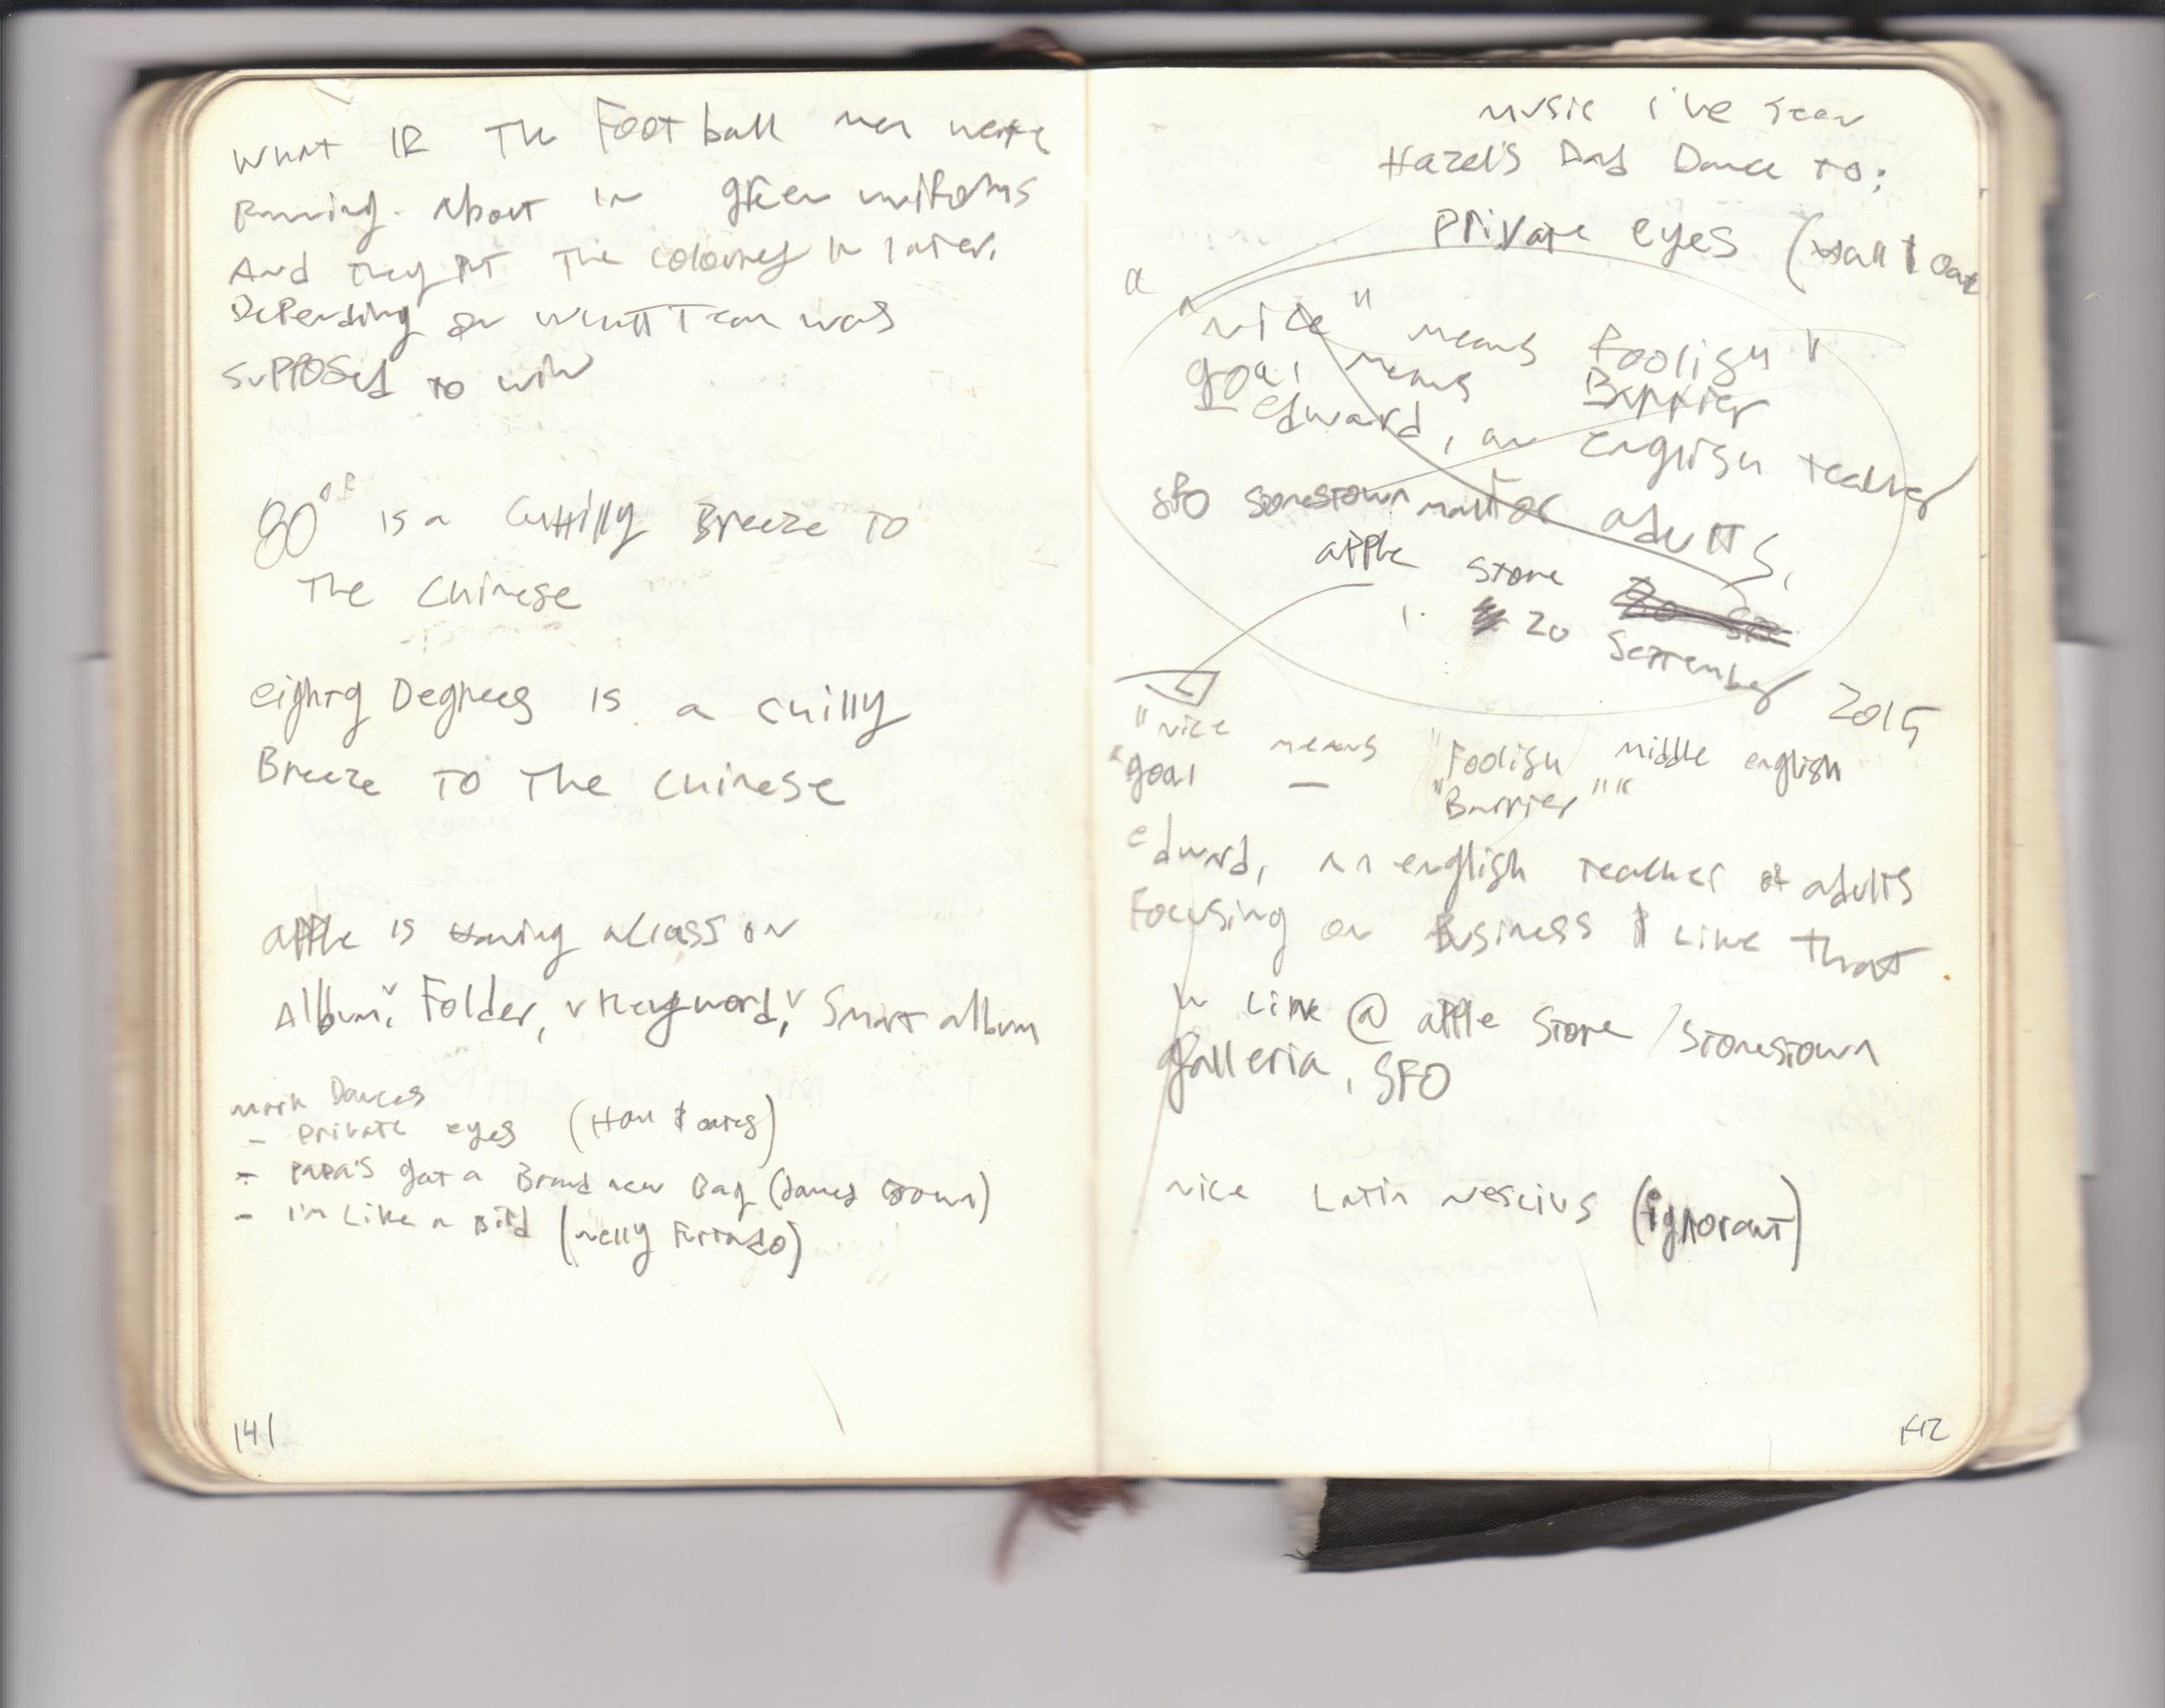 What IR The Football men were
Running about in green uniforms
And they put the colours in later.
Depending on what Team was
supposed to win
80°F is a chilly Breeze to
The Chinese
eighty Degrees is a chilly
Breeze To The Chinese
apple is Having a class on
Album, Folder, Keyword, Smart album
Mark Dances
- private eyes (Hall & oates)
- Papa's got a Brand new Bag (James Brown)
- I'm Like a Bird (nelly Furtado)
141
Music i've seen
Hazel's Dad Dance to:
Private eyes (Hall & Oat
"nice" means foolish
goal means Barrier
- edward, an English teacher
for adults,
SFO Stonestown mall
apple store
20 September 2015
"nice means "Foolish middle english
"goal — "Barrier""
edward, an english teacher of adults
Focusing on Business & Like that
In Line @ apple Store / Stonestown
galleria, SFO
nice Latin nescius (ignorant)
142